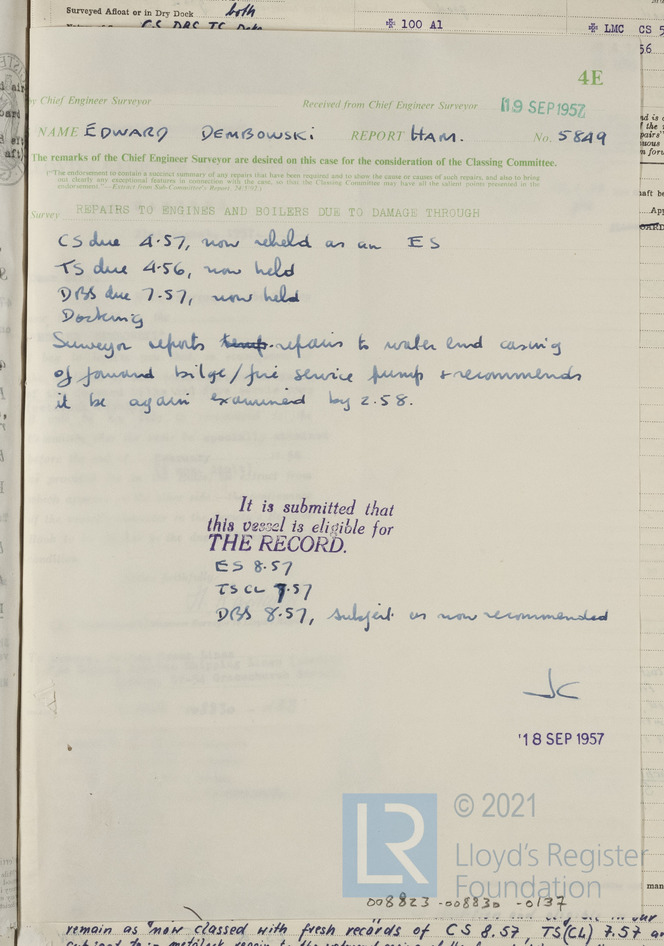 Surveyed Afloat or in Dry Dock both
CS DBS TS
✠ 100 A1
✠ LMC CS 5
56
4E
by Chief Engineer Surveyor
Received from Chief Engineer Surveyor
19 SEP 1957
NAME EDWARD DEMBOWSKI REPORT HAM. No. 5849
The remarks of the Chief Engineer Surveyor are desired on this case for the consideration of the Classing Committee.
("The endorsement to contain a succinct summary of any repairs that have been required and to show the cause or causes of such repairs, and also to bring
out clearly any exceptional features in connection with the case, so that the Classing Committee may have all the salient points presented in the
endorsement."—Extract from Sub-Committee's Report,
Survey REPAIRS TO ENGINES AND BOILERS DUE TO DAMAGE THROUGH
CS due 4.57, now reheld as an ES
TS due 4.56, now held
DBS due 7.57, now held
Docking
Surveyor reports temp. repairs to water end casing
of forward bilge/fire service pump + recommends
it be again examined by 2.58.
It is submitted that
this vessel is eligible for
THE RECORD.
ES 8.57
TSCL 7.57
DBS 8.57, subject as now recommended
JC
18 SEP 1957
LR
© 2021
Lloyd's Register
Foundation
008823-008830-0137
remain as "now classed with fresh records of CS 8.57, TS(CL) 7.57